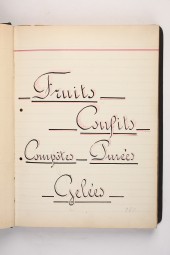 Fruits
Confits
Compôtes _ Purées
_ Gelées _